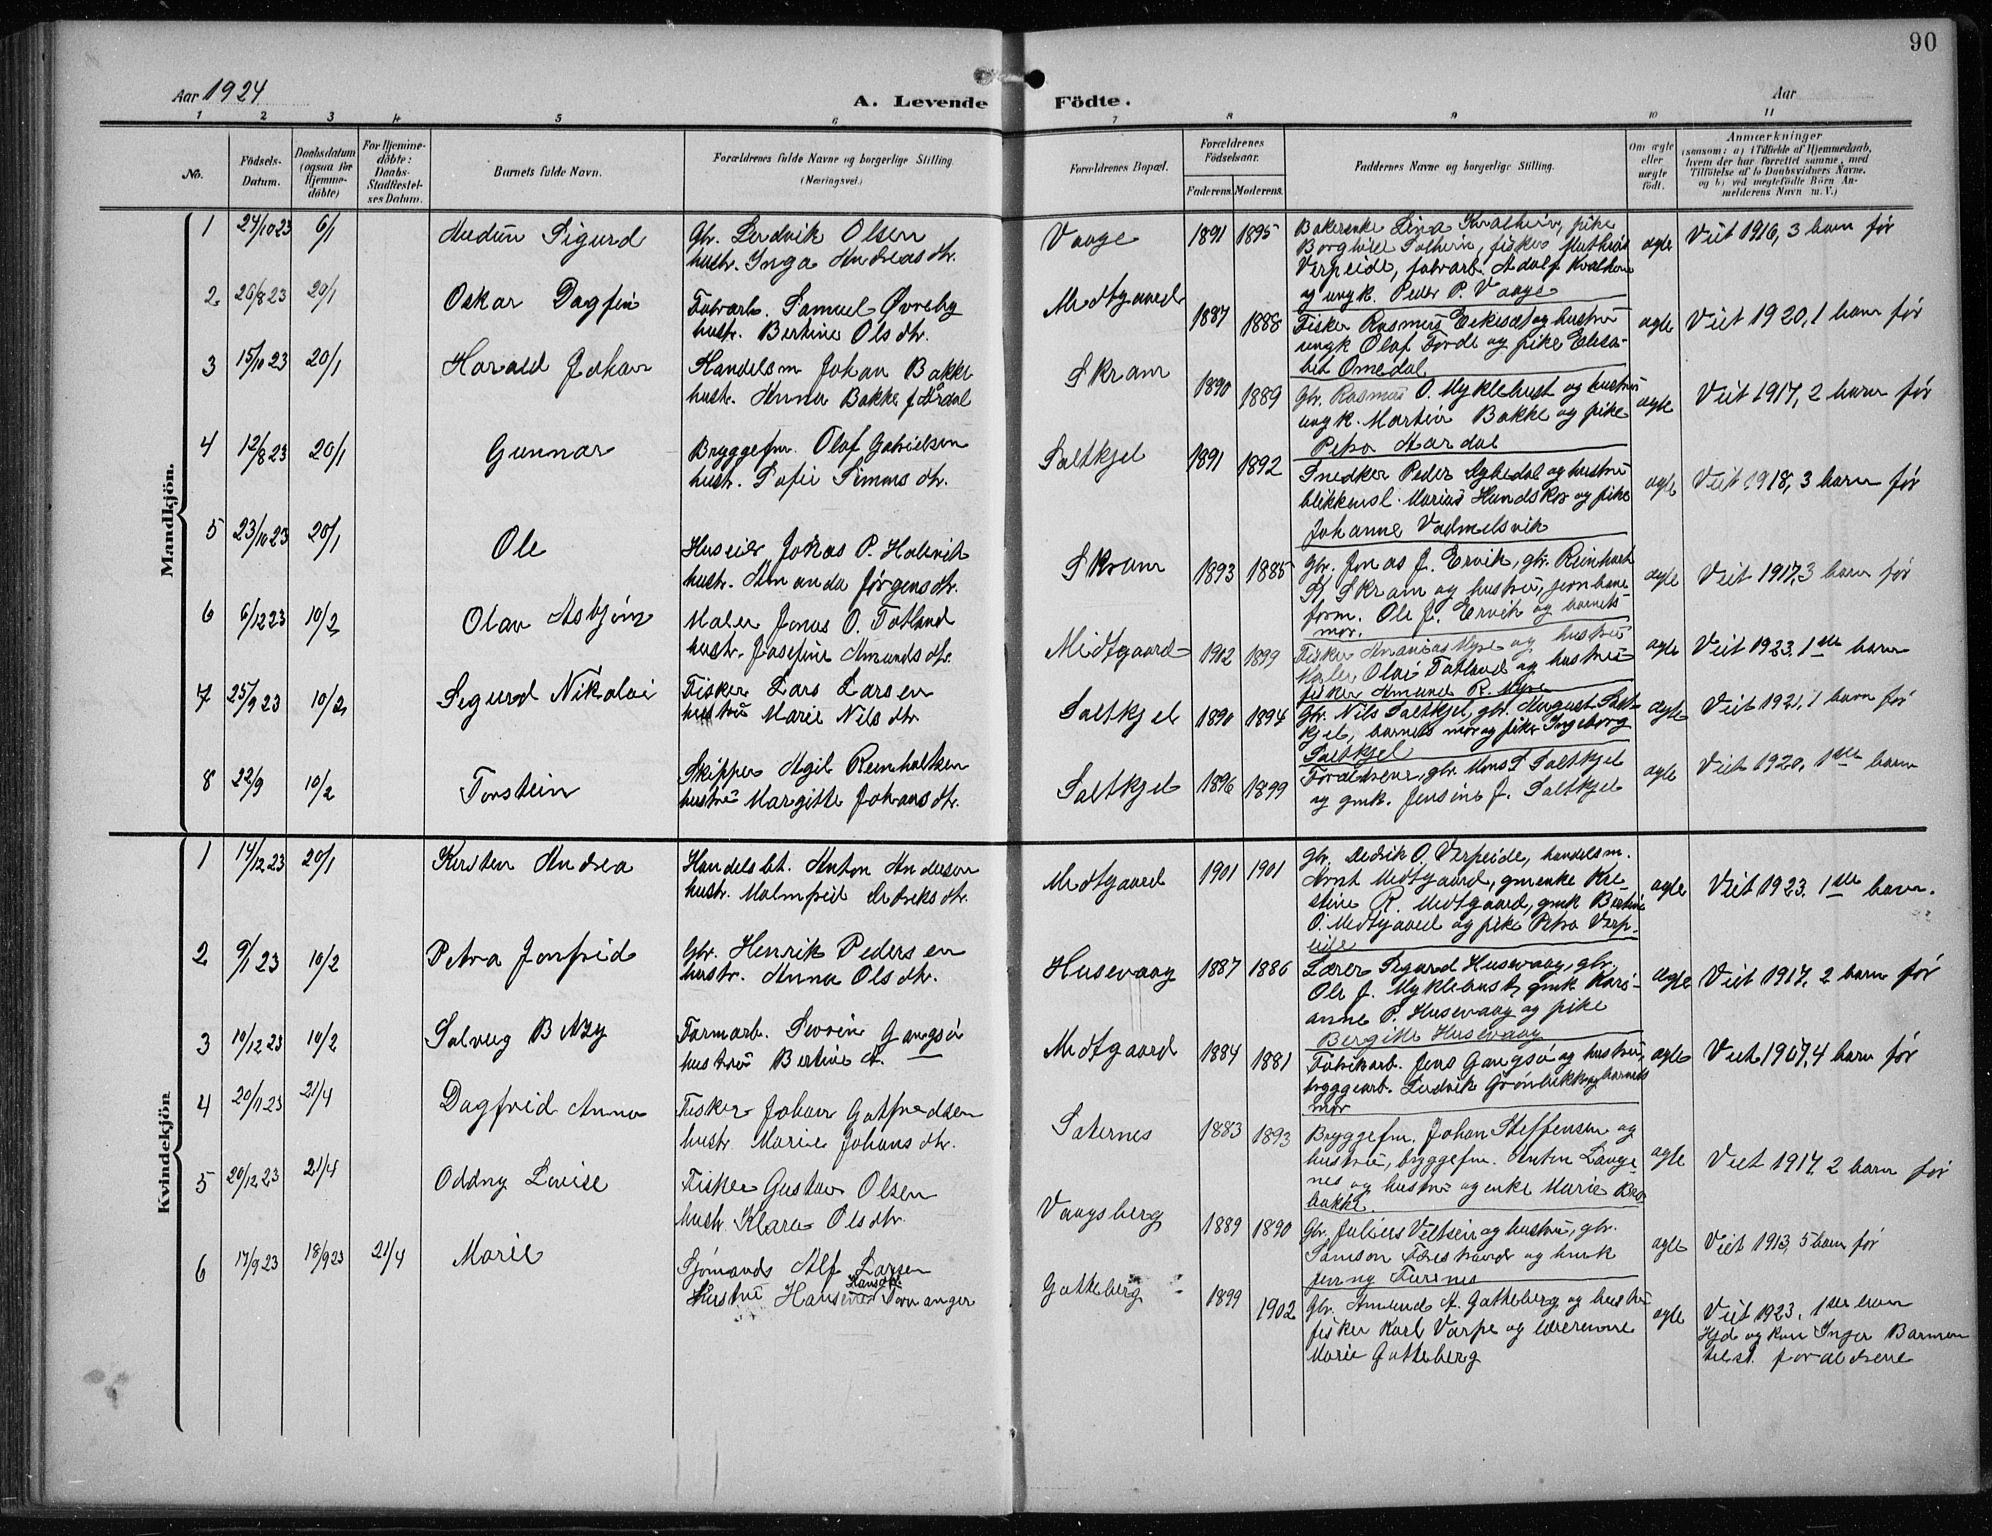 90
Aar 1924
A. Levende Födte.
Aar
1 2 3 4 5 6 7 8 9 10 11
No.
Födsels-Datum.
Daabsdatum (ogsaa for Hjemmedöbte)
For Hjemmedöbte: Daabs-Stadfestelses Datum.
Barnets fulde Navn.
Forældrenes fulde Navne og borgerlige Stilling. (Næringsvei.)
Forældrenes Bopæl.
Forældrenes Födselsaar.
Faderens. Moderens.
Faddernes Navne og borgerlige Stilling.
Om ægte eller uægte födt.
Anmærkninger
(saasom: a) i Tilfælde af Hjemmedaab, hvem der har forrettet samme, med Tilföielse af to Daabsvidners Navne, og b) ved uægtefödte Börn Anmelderens Navn m. V.)
Mandkjön.
1 24/10 23 6/1 Audun Sigurd
Gbr. Ludvik Olsen
hustr. Inga Andreasdtr.
Vaage 1891 1895
Bakerenke Lina Kvalheim, pike
Borghild Solheim, fisker Mathias
Verpeide, fabrarb. Adolf Kvalheim
og ungk. Peder P. Vaage
ægte Viet 1916, 3 barn før
2 20/8 23 20/1 Oskar Dagfin
Fabrarb. Samuel Øvreby
hustr. Bertine Olsdtr.
Midtgaard 1887 1888
Fisker Rasmus Eikeset og hustru
ungk Olaf Förde og pike Elisabet Omedal
ægte Viet 1920, 1 barn før
3 15/10 23 20/1 Harald Johan
Handelsm Johan Bakke
hustr. Anna Bakke f. Årdal
Skram 1890 1889
Gbr. Rasmus O. Myklebust og hustru
ungk. Martin Bakke og pike
Petra Aardal
ægte Viet 1917, 2 barn før
4 12/8 23 20/1 Gunnar
Bryggefm. Olaf Gabrielsen
hustr. Sofie Simonsdtr.
Saltkjel 1891 1892
Snedker Peder Myhedal og hustru
blikkensl. Marius Hundskor og pike
Johanne Vadmelsvik
ægte Viet 1918, 3 barn før
5 23/10 23 20/1 Ole
Huseier Jonas P. Halsvik
hustr. Amanda Jørgensdtr.
Skram 1893 1885
Gbr. Jonas J. Ervik, gbr. Reinhart
P. Skram og hustru, jernbane
form. Ole J. Ervik og barnets
mor.
ægte Viet 1917, 3 barn før
6 6/12 23 10/2 Olav Asbjørn
Maler Jonas O. Totland
hustr. Josefine Amundsdtr.
Midtgaard 1902 1899
Fisker Ananias Myre og hustru
Maler Olai Totland og hustru
fisker Amund R. Myre
ægte Viet 1923. 1ste barn
7 25/9 23 10/2 Sigurd Nikolai
Fisker Lars Larsen
hustru Marie Nilsdtr
Saltkjel 1890 1894
Gbr. Nils Saltkjel, gbr. August Saltkjel, barnets mor og pike Ingeborg
Saltkjel
ægte Viet 1921, 1 barn før
8 22/9 10/2 Torstein
Skipper Agil Reinholtsen
hustru Margitte Johansdtr.
Saltkjel 1896 1899
Forældrene, gbr. Mons S Saltkjel
og gmk. Jensine J. Saltkjel
ægte Viet 1920, 1ste barn
Kvindekjön
1 14/12 23 20/1 Kirsten Andrea
Handelsbt. Anton Andersen
hustr. Malmfrid Didriksdtr.
Midtgaard 1901 1901
Gbr. Didrik O. Verpeide, handelsm.
Arnt Midtgaard, gmenke Kristine R. Midtgaard, gmk Bertine
O. Midtgaard og pike Petra Verpeide
ægte Viet 1923. 1ste barn.
2 9/1 23 10/2 Petra Jonfrid
Gbr. Henrik Pedersen
hustr. Anna Olsdtr.
Husevaag 1887 1886
Lærer Sigurd Husevaag, gbr.
Ole J. Myklebust, gmk Karsanne P. Husevaag og pike
Bergitte Husevaag
ægte Viet 1917, 2 barn før
3 10/12 23 10/2 Solveig Betzy
Formarb. Severin Gangsöi
hustru Bertine A.
Midtgaard 1884 1881
Fabrikarb. Jens Gangsöi og hustru,
bryggearb. Ludvik Grönbekk og barnets
mor
ægte Viet 1907, 4 barn før
4 20/11 23 21/4 Dagfrid Anna
Fisker Johan Gotfredsen
hustr. Marie Johansdtr.
Saternes 1883 1893
Bryggefm. Johan Steffensen og
hustru, bryggefm. Anton Langenes og hustru og enke Marie Brobakke.
ægte Viet 1917 2 barn før
5 20/12 23 21/4 Oddny Lovise
Fisker Gustav Olsen
hustr. Klara Olsdtr.
Vaagsberg 1889 1890
Gbr. Julius Veltsein og hustru, gbr.
Samson Færestrand og hmk
Jenny Furenes
ægte Viet 1913, 5 barn før
6 17/9 23 18/9 23 21/4 Marie
Sjømands Alf Larsen
Hustru Hansine Hansdtr. Torvanger
Gotteberg 1899 1902
Gbr. Amund A. Gotteberg og hustru
fisker Karl Varpe og lærerinne
Marie Gotteberg
ægte Viet 1923. 1ste barn
Hjd og kone Inger Barmen
tilst. forældrene